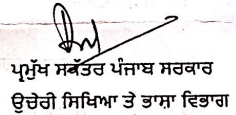 ਪ੍ਰਮੁੱਖ ਸਕੱਤਰ ਪੰਜਾਬ ਸਰਕਾਰ
ਉਚੇਰੀ ਸਿਖਿਆ ਤੇ ਭਾਸ਼ਾ ਵਿਭਾਗ